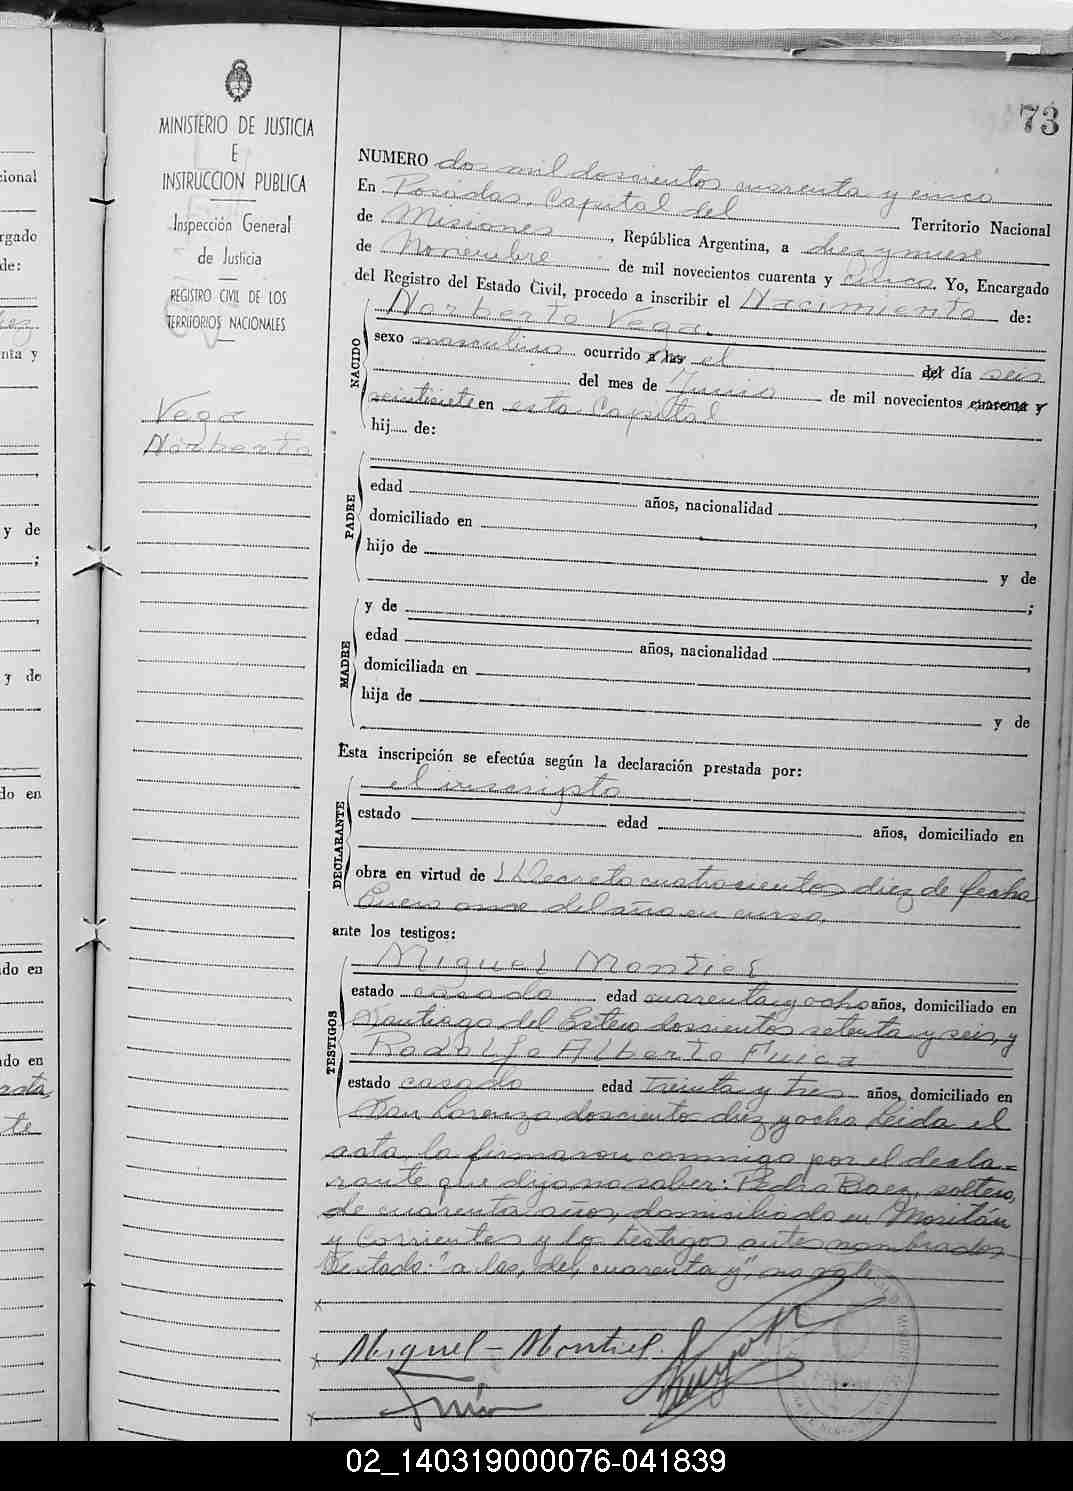 73
MINISTERIO DE JUSTICIA
E
INSTRUCCION PUBLICA
Inspección General
de Justicia
REGISTRO CIVIL DE LOS
TERRITORIOS NACIONALES
Vega
Norberto
NUMERO dos mil doscientos cuarenta y cinco
En Posadas, Capital del Territorio Nacional
de Misiones, República Argentina, a diez y nueve
de Noviembre de mil novecientos cuarenta y cinco Yo, Encargado
del Registro del Estado Civil, procedo a inscribir el Nacimiento de:
NACIDO
Norberto Vega.
sexo masculino ocurrido a las el del día seis
del mes de Junio de mil novecientos cuarenta y
veintisiete en esta Capital
hij de:
PADRE
edad años, nacionalidad ,
domiciliado en
hijo de y de
;
MADRE
y de
edad años, nacionalidad ,
domiciliada en
hija de y de
Esta inscripción se efectúa según la declaración prestada por:
DECLARANTE
el inscripto
estado edad años, domiciliado en
obra en virtud de l Decreto cuatrocientos diez de fecha
Enero once del año en curso,
ante los testigos:
TESTIGOS
Miguel Montiel
estado casado edad cuarenta y ocho años, domiciliado en
Santiago del Estero doscientos setenta y seis, y
Rodolfo Alberto
estado casado edad treinta y tres años, domiciliado en
San Lorenzo doscientos diez y ocho Leida el
acta, la firmaron conmigo por el decla-
rante que dijo no saber: Pedro Baez, soltero,
de cuarenta años, domiciliado en
y Corrientes y los testigos antes nombrados
Testado: "a las, del, cuarenta y", no vale
Miguel - Montiel.
ional
rgado
de:
nta y
y de
;
y de
do en
do en
do en
te
02_140319000076-041839